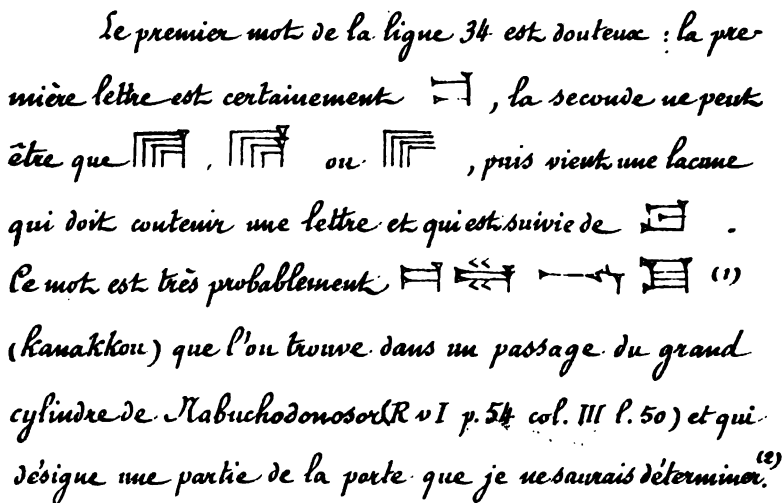 Le premier mot de la ligne 34 est douteux : la pre-
mière lettre est certainement , la seconde ne peut
être que , ou , puis vient une lacune
qui doit contenir une lettre et qui est suivie de .
Ce mot est très probablement (1)
(kanakkou) que l'on trouve dans un passage du grand
cylindre de Nabuchodonosor (R v I p. 54 col. III l. 50) et qui
désigne une partie de la porte que je ne saurais déterminer. (2)